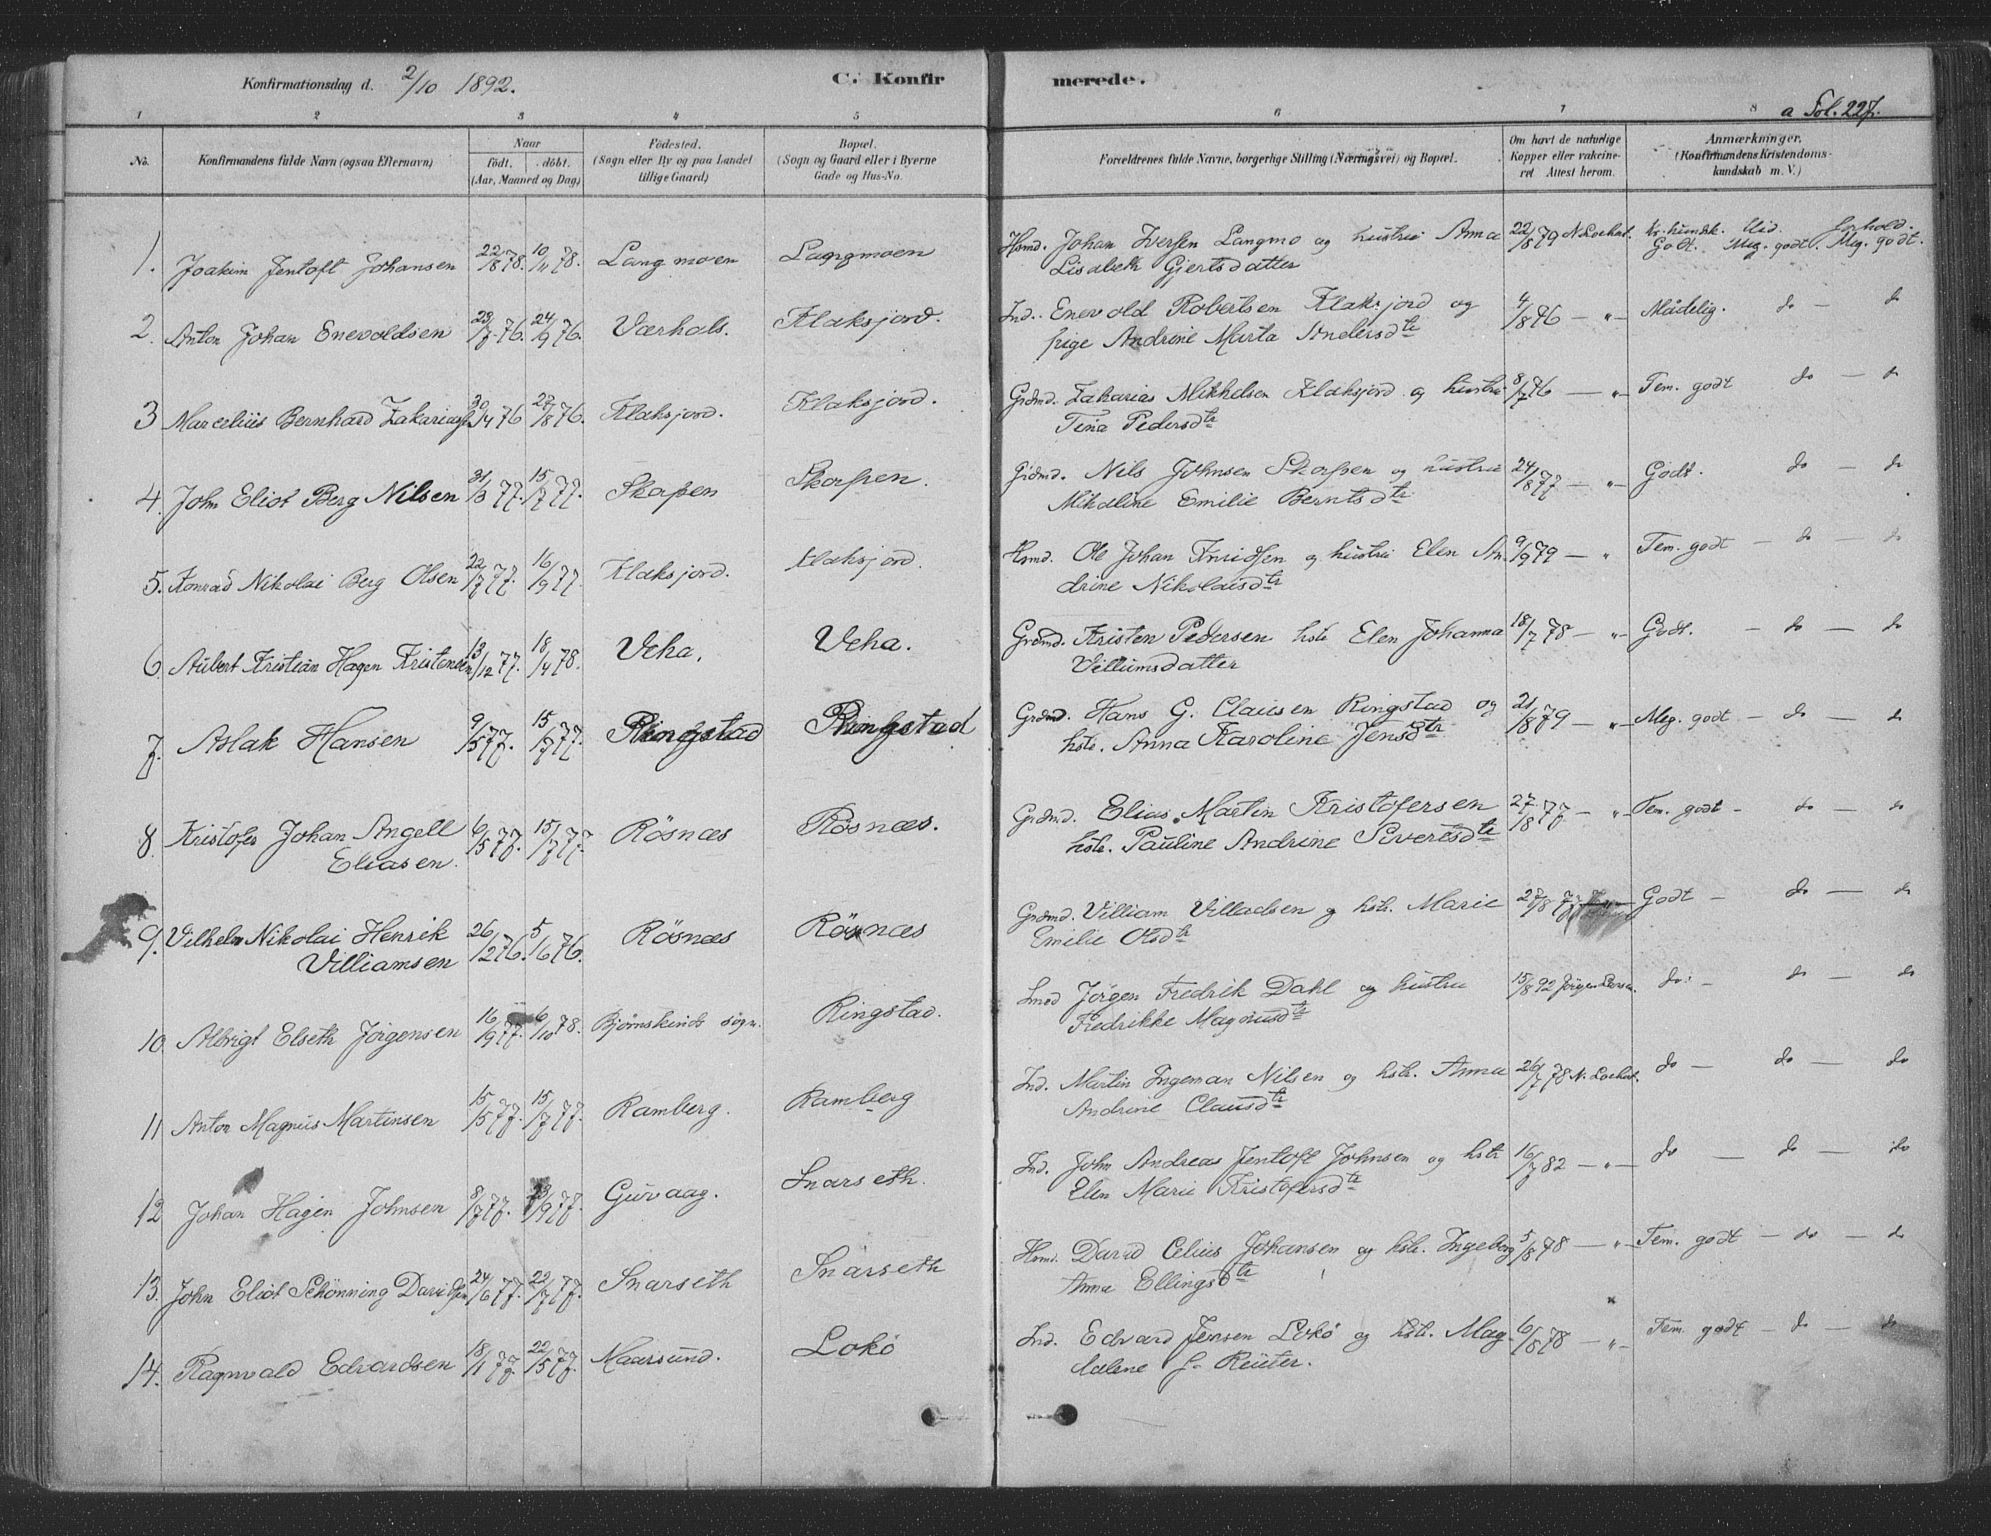 Konfirmationsdag d. 2/10 1892. C. Konfirmerede. a Fol. 227.
1 2 3 4 5 6 7 8
No. Konfirmandens fulde Navn (ogsaa Efternavn) Naar födt. döbt. (Aar, Maaned og Dag) Födested. (Sogn eller By og paa Landet tillige Gaard) Bopæl. (Sogn og Gaard eller i Byerne Gade og Hus-No. Forældrenes fulde Navne, borgerlige Stilling (Næringsvei) og Bopæl. Om havt de naturlige Kopper eller vakcineret Attest herom. Anmærkninger, (Konfirmandens Kristendomskundskab m. V.)
Kr. kundsk. Flid. Forhold.
1. Joakim Jentoft Johansen 22/8 78. 10/11 78. Langmoen Langmoen Hsmd. Johan Iversen Langmo og hustru Anna 22/8 79 N. Lockert. Godt. Meg. godt. Meg. godt.
Lisabeth Gjertsdatter
2. Anton Johan Enevoldsen 23/7 76. 24/9 76. Værhals. Klaksjord. Ind. Enevold Robertsen Klaksjord og 4/8 76 — „ — Mådelig. do — do
pige Andrine Marta Andersdtr
3 Marcelius Bernhard Zakariass. 30/4 76 27/8 76. Klaksjord. Klaksjord. Grdmd. Zakarias Mikkelsen Klaksjord og hustru 8/7 76 — „ — Tem. godt do — do
Tina Pedersdtr
4. John Eliot Berg Nilsen 31/3 77. 15/7 77. Skarpen Skarpen. Grdmd. Nils Johnsen Skarpen og hustru 24/8 77 — „ — Godt. do — do
Mikaline Emilie Berntsdtr
5. Konrad Nikolai Berg Olsen 22/7 77. 16/9 77. Klaksjord. Klaksjord. Hsmd. Ole Johan Knudsen og hustru Elen An- 9/9 79 — „ Tem. godt — do — do
drine Nikolaisdtr
6. Aubert Kristian Hagen Kristensen 13/12 77. 18/4 78. Veha. Veha. Grdmd. Kristen Pedersen hstr Elen Johanna 18/7 78 — „ — Godt. — do — do
Villumsdatter
7. Aslak Hansen 9/5 77. 15/7 77. Ringstad Ringstad Grdmd. Hans G. Clausen Ringstad og 21/8 79 — „ — Meg. godt — do — do
hstr. Anna Karoline Jensdtr
8. Kristofer Johan Angell 6/5 77. 15/7 77. Rösnæs Rösnæs. Grdmd. Elias Martin Kristofersen 27/8 77. — „ — Tem. godt — do — do
Eliasen. hstr. Pauline Andrine Sivertsdtr
9. Vilhelm Nikolai Henrik 26/12 76. 5/6 76. Rösnæs Rösnæs Grdmd. Villiam Villadsen og hstr. Marie 28/8 77 Godt — do — do
Villiamsen Emilie Olsdtr
10. Albrigt Elseth Jörgensen 16/9 77. 6/10 78. Bjørnskinds sogn. Ringstad. Smed Jörgen Fredrik Dahl og hustru 15/8 92 do. — do — do
Fredrikke Magnusdtr
11 Anton Magnus Martinsen 15/5 77. 15/7 77. Ramberg. Ramberg Ind. Martin Ingeman Nilsen og hstr. Anna 26/7 78 N. Lockert. do — do — do
Andrine Clausdtr
12 Johan Hagen Johnsen 8/7 77. 23/9 77. Guvaag. Snarseth. Ind. John Andreas Jentoft Johnsen og hstr 16/7 82 — „ — do — do — do
Elen Marie Kristofersdtr
13. John Eliot Schönning Davidsen 24/6 77. 22/7 77. Snarseth Snarseth Hsmd. David Celius Johansen og hstr. Ingeborg 5/8 78 — „ — Tem. godt — do — do
Anna Ellingsdtr
14. Ragnvald Edvardsen 18/11 77. 22/5 77. Maarsund. Lokö Ind. Edvard Jensen Lokö og hstr. Mag- 6/8 78 — „ — Tem. godt — do — do
dalene f. Reuter.